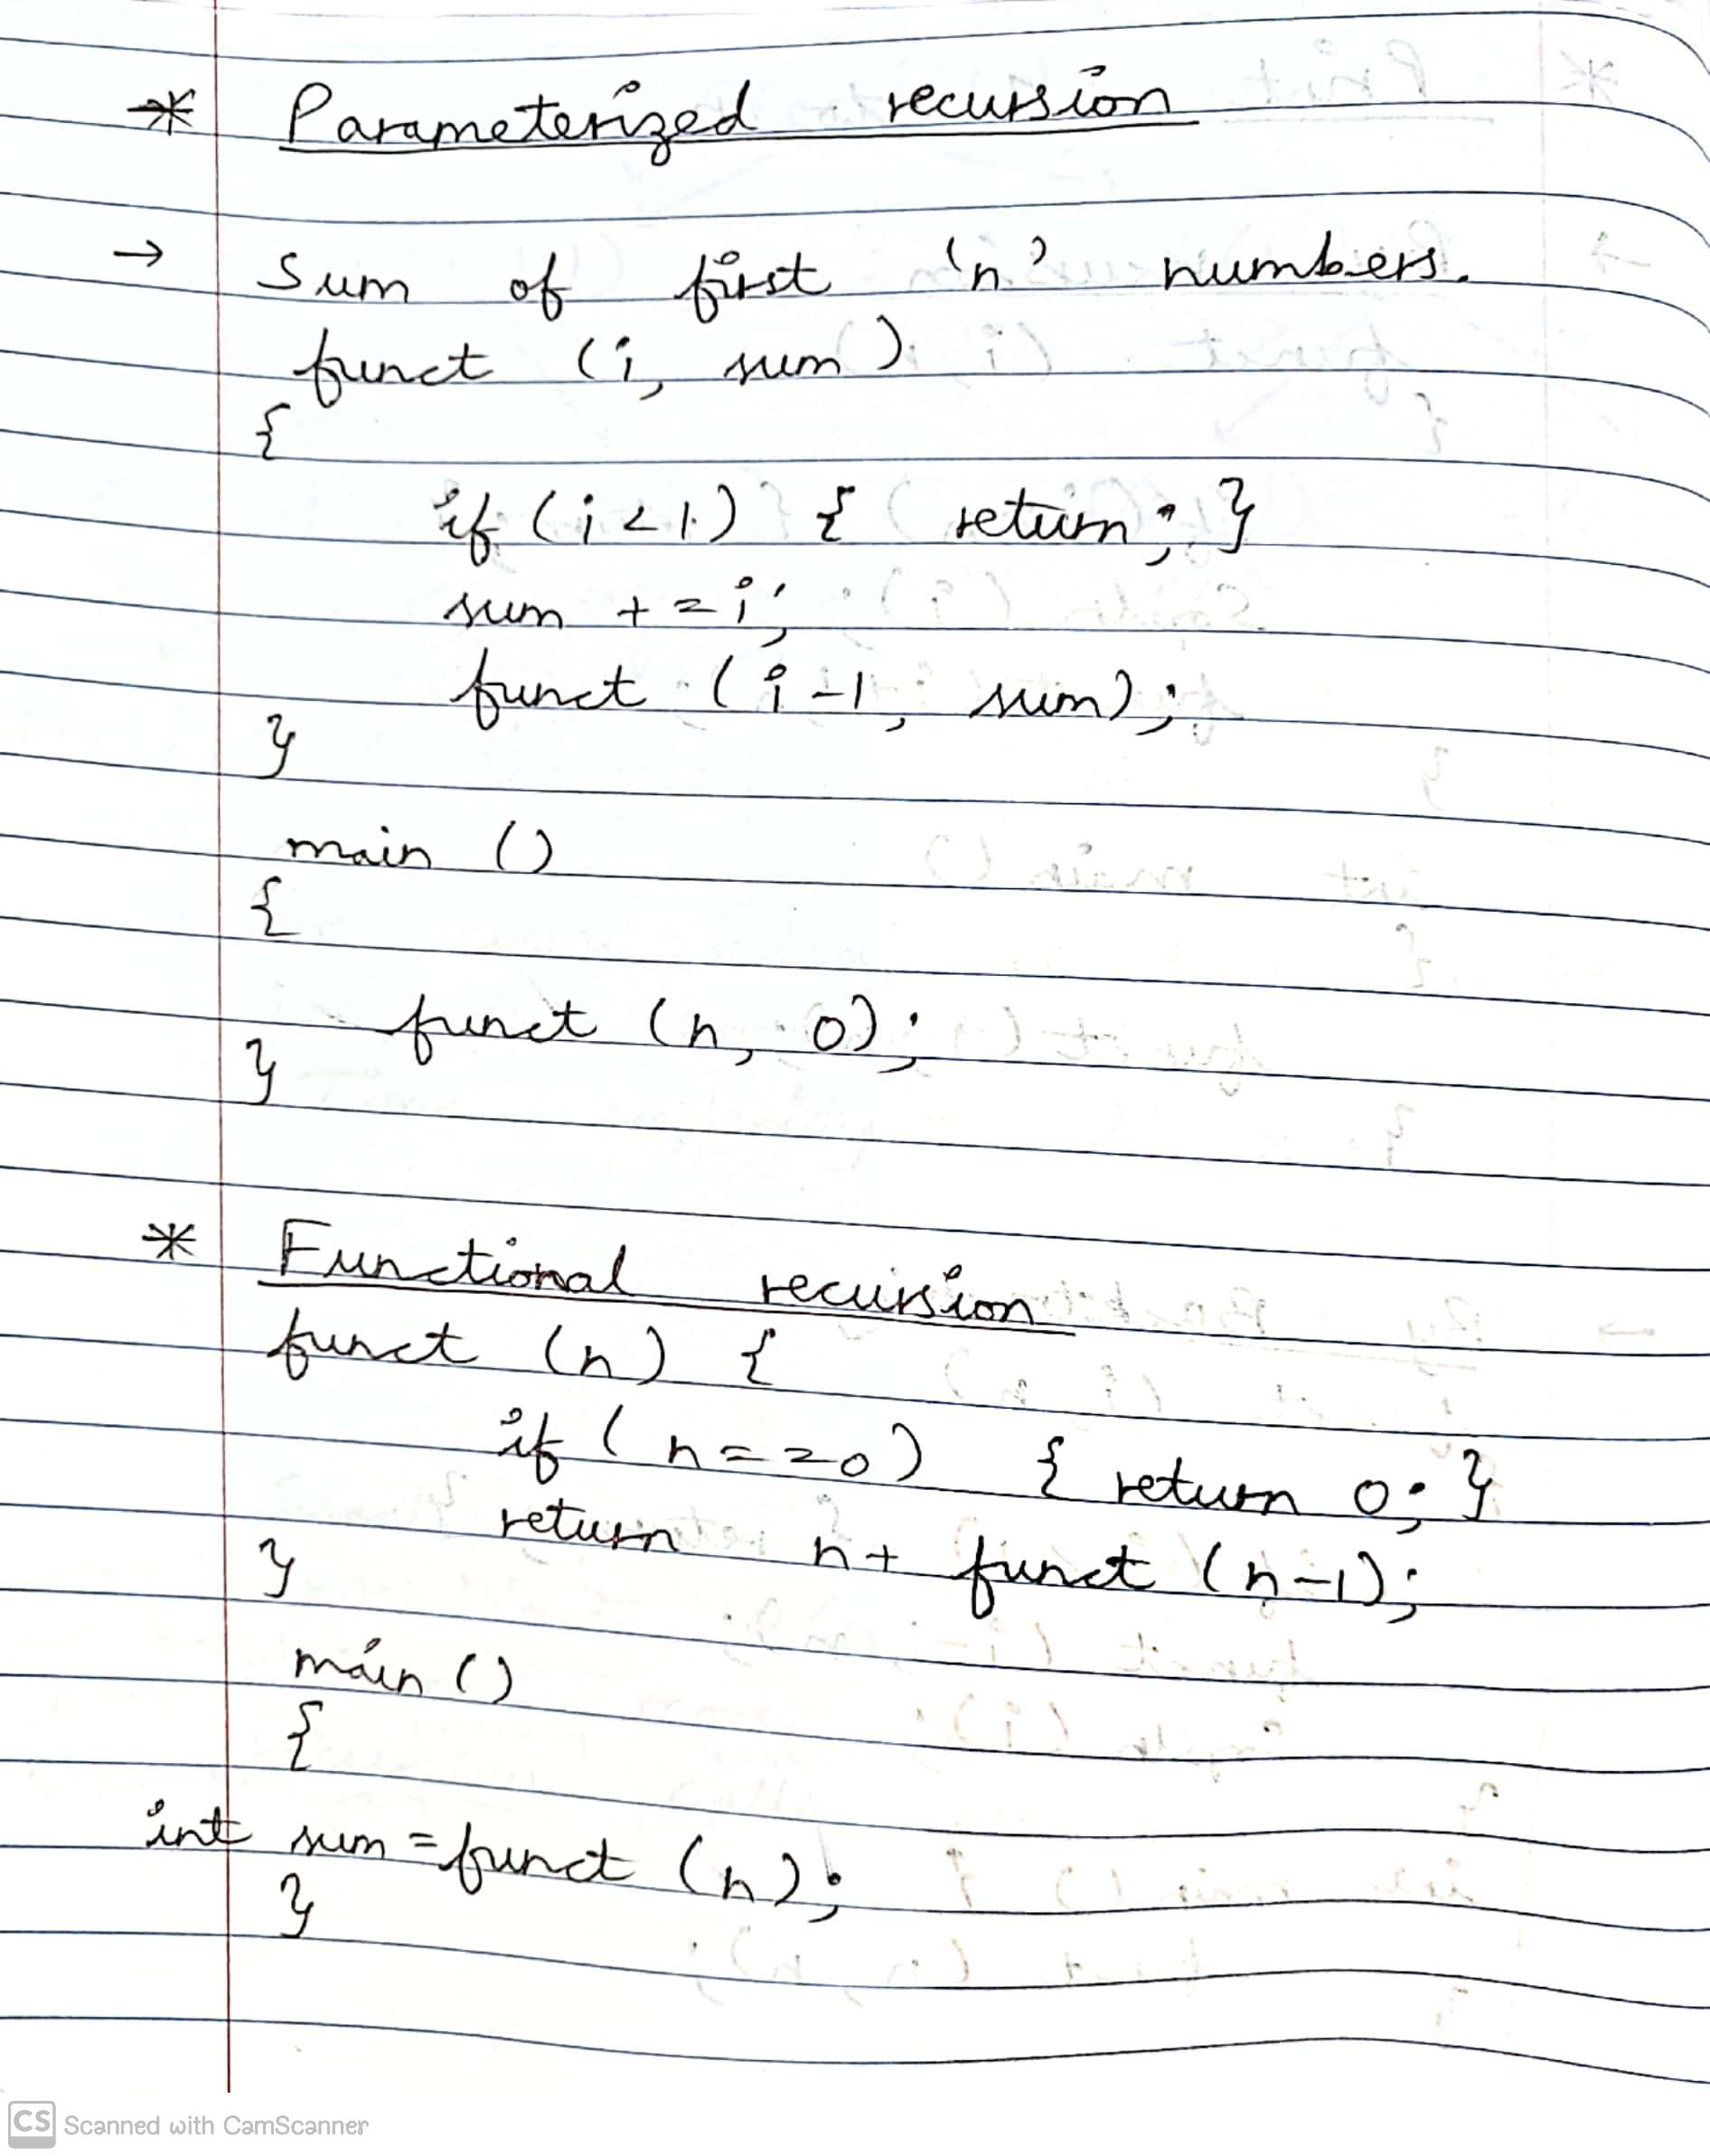 * Parameterized recursion
→ Sum of first 'n' numbers.
funct (i, sum)
{
if (i<1) { return; }
sum += i;
funct (i-1, sum);
}
main ()
{
funct (n, 0);
}
* Functional recursion
funct (n) {
if (n==0) { return 0; }
return n+ funct (n-1);
}
main ()
{
int sum = funct (n);
}
CS Scanned with CamScanner